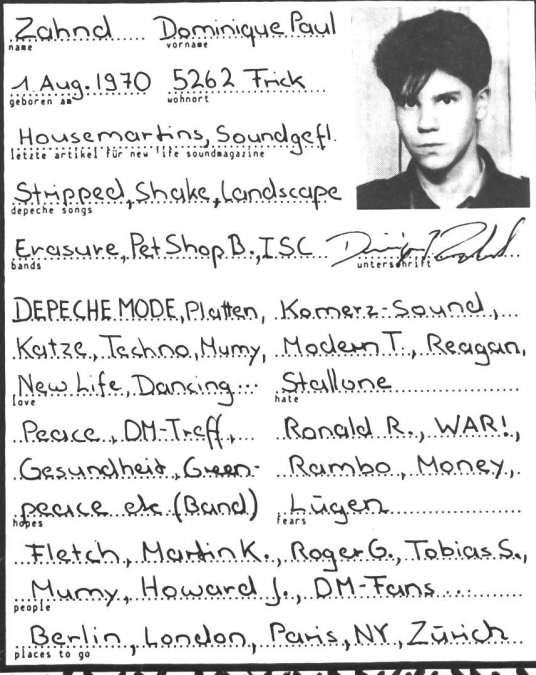 Zahnd Dominique Paul
name vorname
1 Aug. 1970 5262 Frick
geboren am wohnort
Housemartins, Soundgefl.
letzte artikel für new life soundmagazine
Stripped, Shake, Landscape
depeche songs
Erasure, Pet Shop B., ISC
bands unterschrift
DEPECHE MODE, Platten,
Katze, Techno, Mumy,
New Life, Dancing...
love
Komerz-Sound,
Modern T., Reagan,
Stallone
hate
Peace, DM-Treff,
Gesundheit, Green-
peace etc (Band)
hopes
Ronald R., WAR!,
Rambo, Money,
Lügen
fears
Fletch, Martin K., Roger G., Tobias S.,
Mumy, Howard J., DM-Fans...
people
Berlin, London, Paris, NY, Zürich
places to go